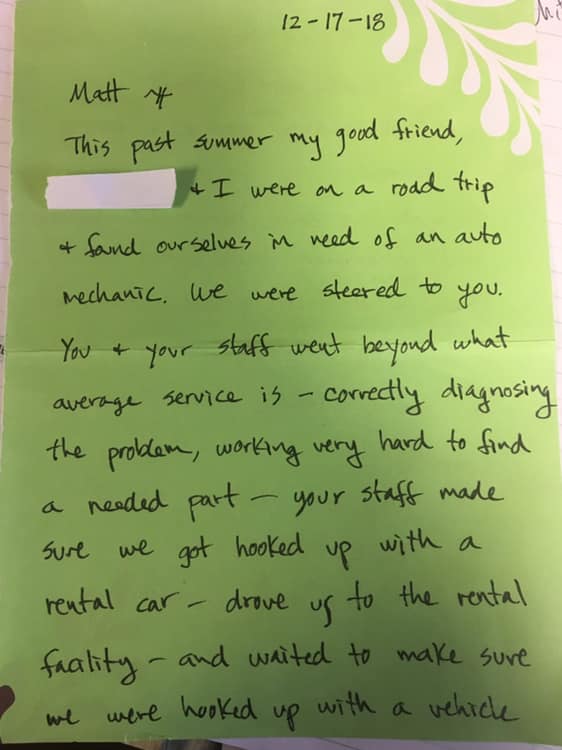 12-17-18
Matt
This past summer my good friend,
+ I were on a road trip
+ found ourselves in need of an auto
mechanic. We were steered to you.
You + your staff went beyond what
average service is - correctly diagnosing
the problem, working very hard to find
a needed part - your staff made
sure we got hooked up with a
rental car - drove us to the rental
facility - and waited to make sure
we were hooked up with a vehicle